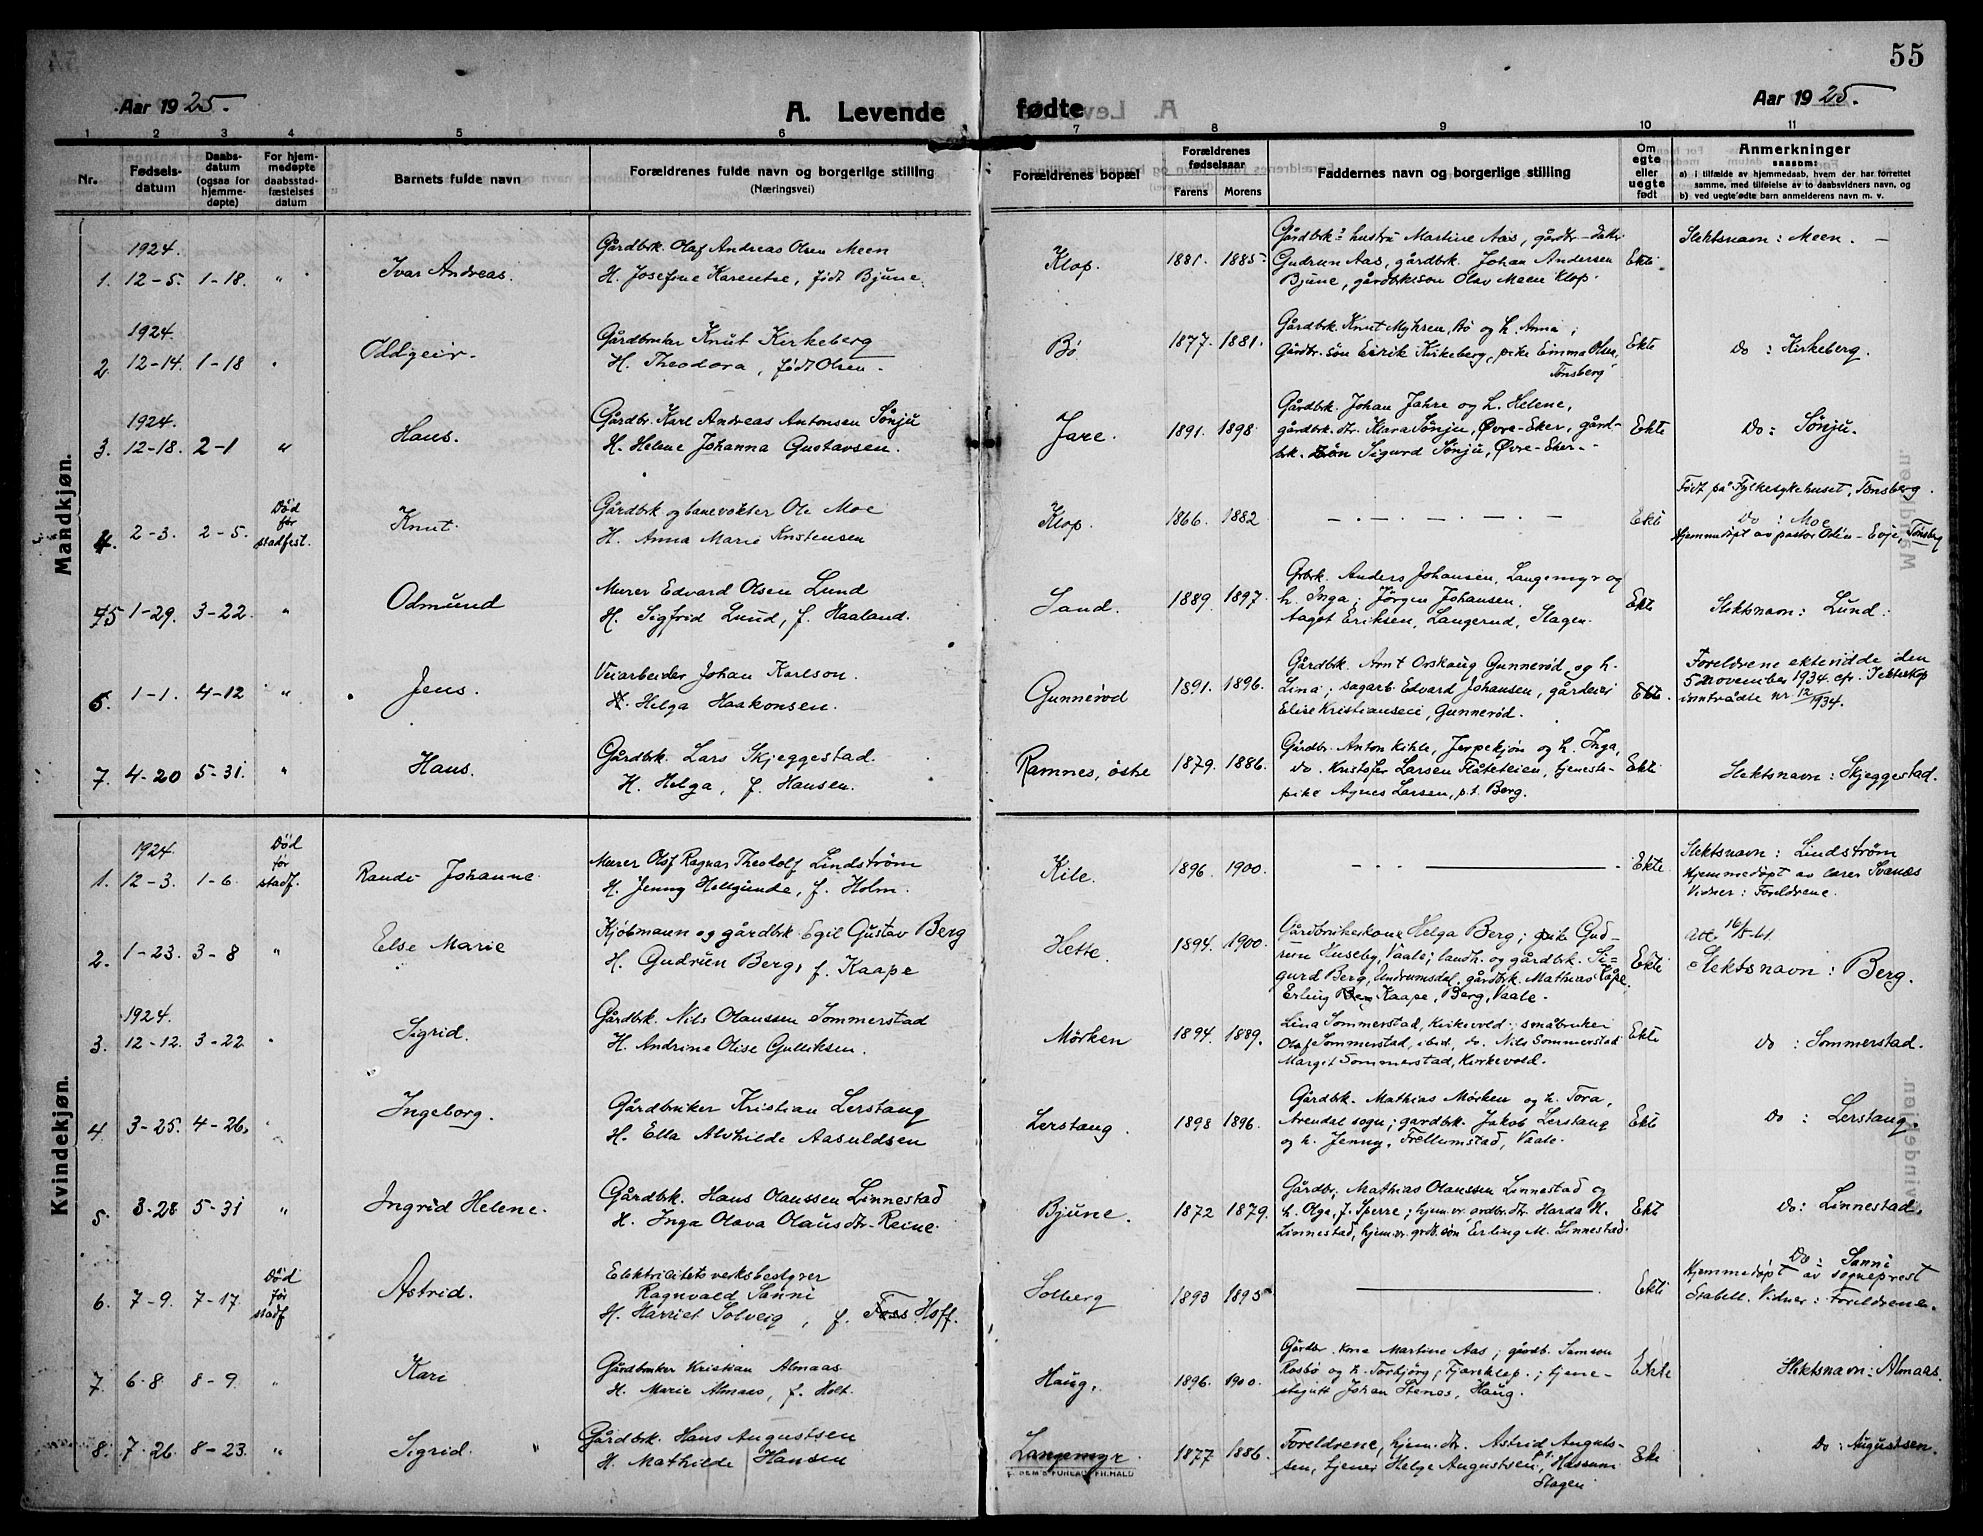 55
Aar 1925.
A. Levende fødte
Aar 1925.
1 2 3 4 5 6 7 8 9 10 11
Nr.
Fødsels-
datum
Daabs-
datum
(ogsaa for
hjemme-
døpte)
For hjem-
medøpte
daabsstad-
fæstelses
datum
Barnets fulde navn
Forældrenes fulde navn og borgerlige stilling
(Næringsvei)
Forældrenes bopæl
Forældrenes
fødselsaar
Farens Morens
Faddernes navn og borgerlige stilling
Om
egte
eller
uegte
født
Anmerkninger
saasom:
a) i tilfælde av hjemmedaab, hvem der har forrettet
samme, med tilføielse av to daabsvidners navn, og
b) ved uegte fødte barn anmelderens navn m. v.
Mandkjøn.
1924.
1. 12-5. 1-18. " Ivar Andreas.
Gårdbrk. Olaf Andreas Olsen Meen
H. Josefine Karentse, født Bjune.
Klop. 1881. 1885.
Gårdbrks hustru Martine Aas, gårdbr-datter
Gudrun Aas, gårdbrk. Johan Andersen
Bjune, gårdbrkson Olav Meen Klop.
Ekte
Slektsnavn: Meen. -
1924.
2. 12-14. 1-18 " Oddgeir.
Gårdbruker Knut Kirkeberg
H. Theodora, født Olsen.
Bø 1877. 1881.
Gårdbrk. Knut Myhren, Bø og h. Anna;
Gårdbr. søn Eirik Kirkeberg, pike Emma Olsen,
Tønsberg
Ekte
Do : Kirkeberg.
1924.
3. 12-18. 2-1 " Hans.
Gårdbr. Karl Andreas Antonsen Sønju
H. Helene Johanna Gustavsen.
Jare. 1891. 1898.
Gårdbrk. Johan Jahre og h. Helene,
gårdbrk. dtr. Klara Sønju, Øvre-Eker, gård-
brk. søn Sigurd Sønju, Øvre-Eker-
Ekte
Do: Sønju.
4. 2-3. 2-5.
Død
før
stadfest.
Knut.
Gårdbrk og banevokter Ole Moe
H. Anna Marie Kristensen
Klop. 1866. 1882
Ekte
Født på Fylkesykehuset, Tønsberg.
Do : Moe
Hjemmedøpt av pastor Odén-Evje, Tønsberg
5 1-29. 3-22. " Odmund
Murer Edvard Olsen Lund
H. Sigfrid Lund, f. Haaland.
Sand. 1889. 1897.
Grbrk. Anders Johansen, Langemyr og
h. Inga; Jørgen Johansen.
Aagot Eriksen, Langerud, Slagen.
Ekte
Slektsnavn: Lund.
6. 1-1. 4-12 " Jens.
Veiarbeider Johan Karlson.
H. Helga Haakonsen.
Gunnerød 1891. 1896.
Gårdbrk. Arnt Orskaug Gunnerød og h.
Lina; sagarb. Edvard Johansen, gårdeier
Elise Kristiansen, Gunnerød.
Ekte.
Foreldrene ekteviedde den
5 november 1934.
inntrådte nr. 12/1934.
7. 4-20 5-31. " Hans.
Gårdbrk. Lars Skjeggestad.
H. Helga, f. Hansen.
Ramnes, østre 1879. 1886.
Gårdbr. Anton Kihle, Jerpekjøn og h. Inga,
do. Kristofer Larsen Flåteteien, tjeneste-
pike Agnes Larsen, p.t. Berg.
Ekte
Slektsnavn: Skjeggestad.
Kvindekjøn.
1924.
1. 12-3. 1-6.
Død
før
stadf.
Randi Johanne.
Murer Olaf Ragnar Theodolf Lindstrøm
H. Jenny Hellgunde, f. Holm.
Kile. 1896. 1900.
Ekte.
Slektsnavn: Lindstrøm
Hjemmedøpt av lærer Svanæs
Vidner: Foreldrene.
2. 1-23. 3-8 " Else Marie
Kjøbmann og gårdbrk. Egil Gustav Berg
H. Gudrun Berg, f. Kaape
Hette. 1894. 1900.
Gårdbrukerkone Helga Berg; pike Gud-
run Huseby, Vaale; landh. og gårdbrk. Si-
gurd Berg, Undrumsdal, gårdbrk. Mathias Kåpe
Erling Kaape, Berg, Vaale.
Ekte
Att. 16/5-41.
Slektsnavn: Berg.
1924.
3. 12-12. 3-22 " Sigrid.
Gårdbrk. Nils Olaussen Sommerstad
H. Andrine Olise Gulliksen.
Mörken 1894. 1889.
Lina Sommerstad, Kirkevold; småbruker
Olaf Sommerstad, ibid, do. Nils Sommerstad
Margit Sommerstad, Kirkevold.
Ekte
Do : Sommerstad.
4. 3-25. 4-26. " Ingeborg.
Gårdbruker Kristian Lerstang
H. Ella Alvhilde Aasuldsen
Lerstang. 1898 1896.
Gårdbrk. Mathias Mörken og h. Tora,
Arendal sogn; gardbrk. Jakob Lerstang
og h. Jenny, Trellumstad, Vaale.
Ekte
Do : Lerstang.
5. 3-28 5-31 " Ingrid Helene.
Gårdbrk. Hans Olaussen Linnestad
H. Inga Olava Olausdtr. Reine.
Bjune. 1872 1879.
Gårdbr. Mathias Olaussen Linnestad og
h. Olga, f. Sperre; hjemv. grdbr. dtr. Harda H.
Linnestad, hjemv. grdb. søn Erling M. Linnestad.
Ekte
Do: Linnestad.
6. 7-9. 7-17.
Død
før
stadf
Astrid.
Elektricitetsverksbestyrer
Ragnvald Sanni
H. Harriet Solveig, f. Foss Hoff.
Solberg 1893 1895
Ekte
Do : Sanni
Hjemmedøpt av sogneprest
Stabell. Vidner: Foreldrene.
7. 6-8. 8-9. " Kari
Gårdbruker Kristian Almaas
H. Marie Almaas, f. Holt.
Haug. 1896. 1900.
Gårdbr. kone Martine Aas; gårdb. Samson
Rosbø og h. Torbjörg; Fjæreklep.; tjene-
stegutt Johan Stenes, Haug.
Ekte
Slektsnavn: Almaas.
8. 7-26. 8-23. " Sigrid. "
Gårdbrk. Hans Augustsen
H. Mathilde Hansen
Langemyr 1877 1886.
Foreldrene, hjem. dtr. Astrid August-
sen, tjener Helge Augustsen, p.t. Hassum
Slagen
Ekte
Do : Augustsen.